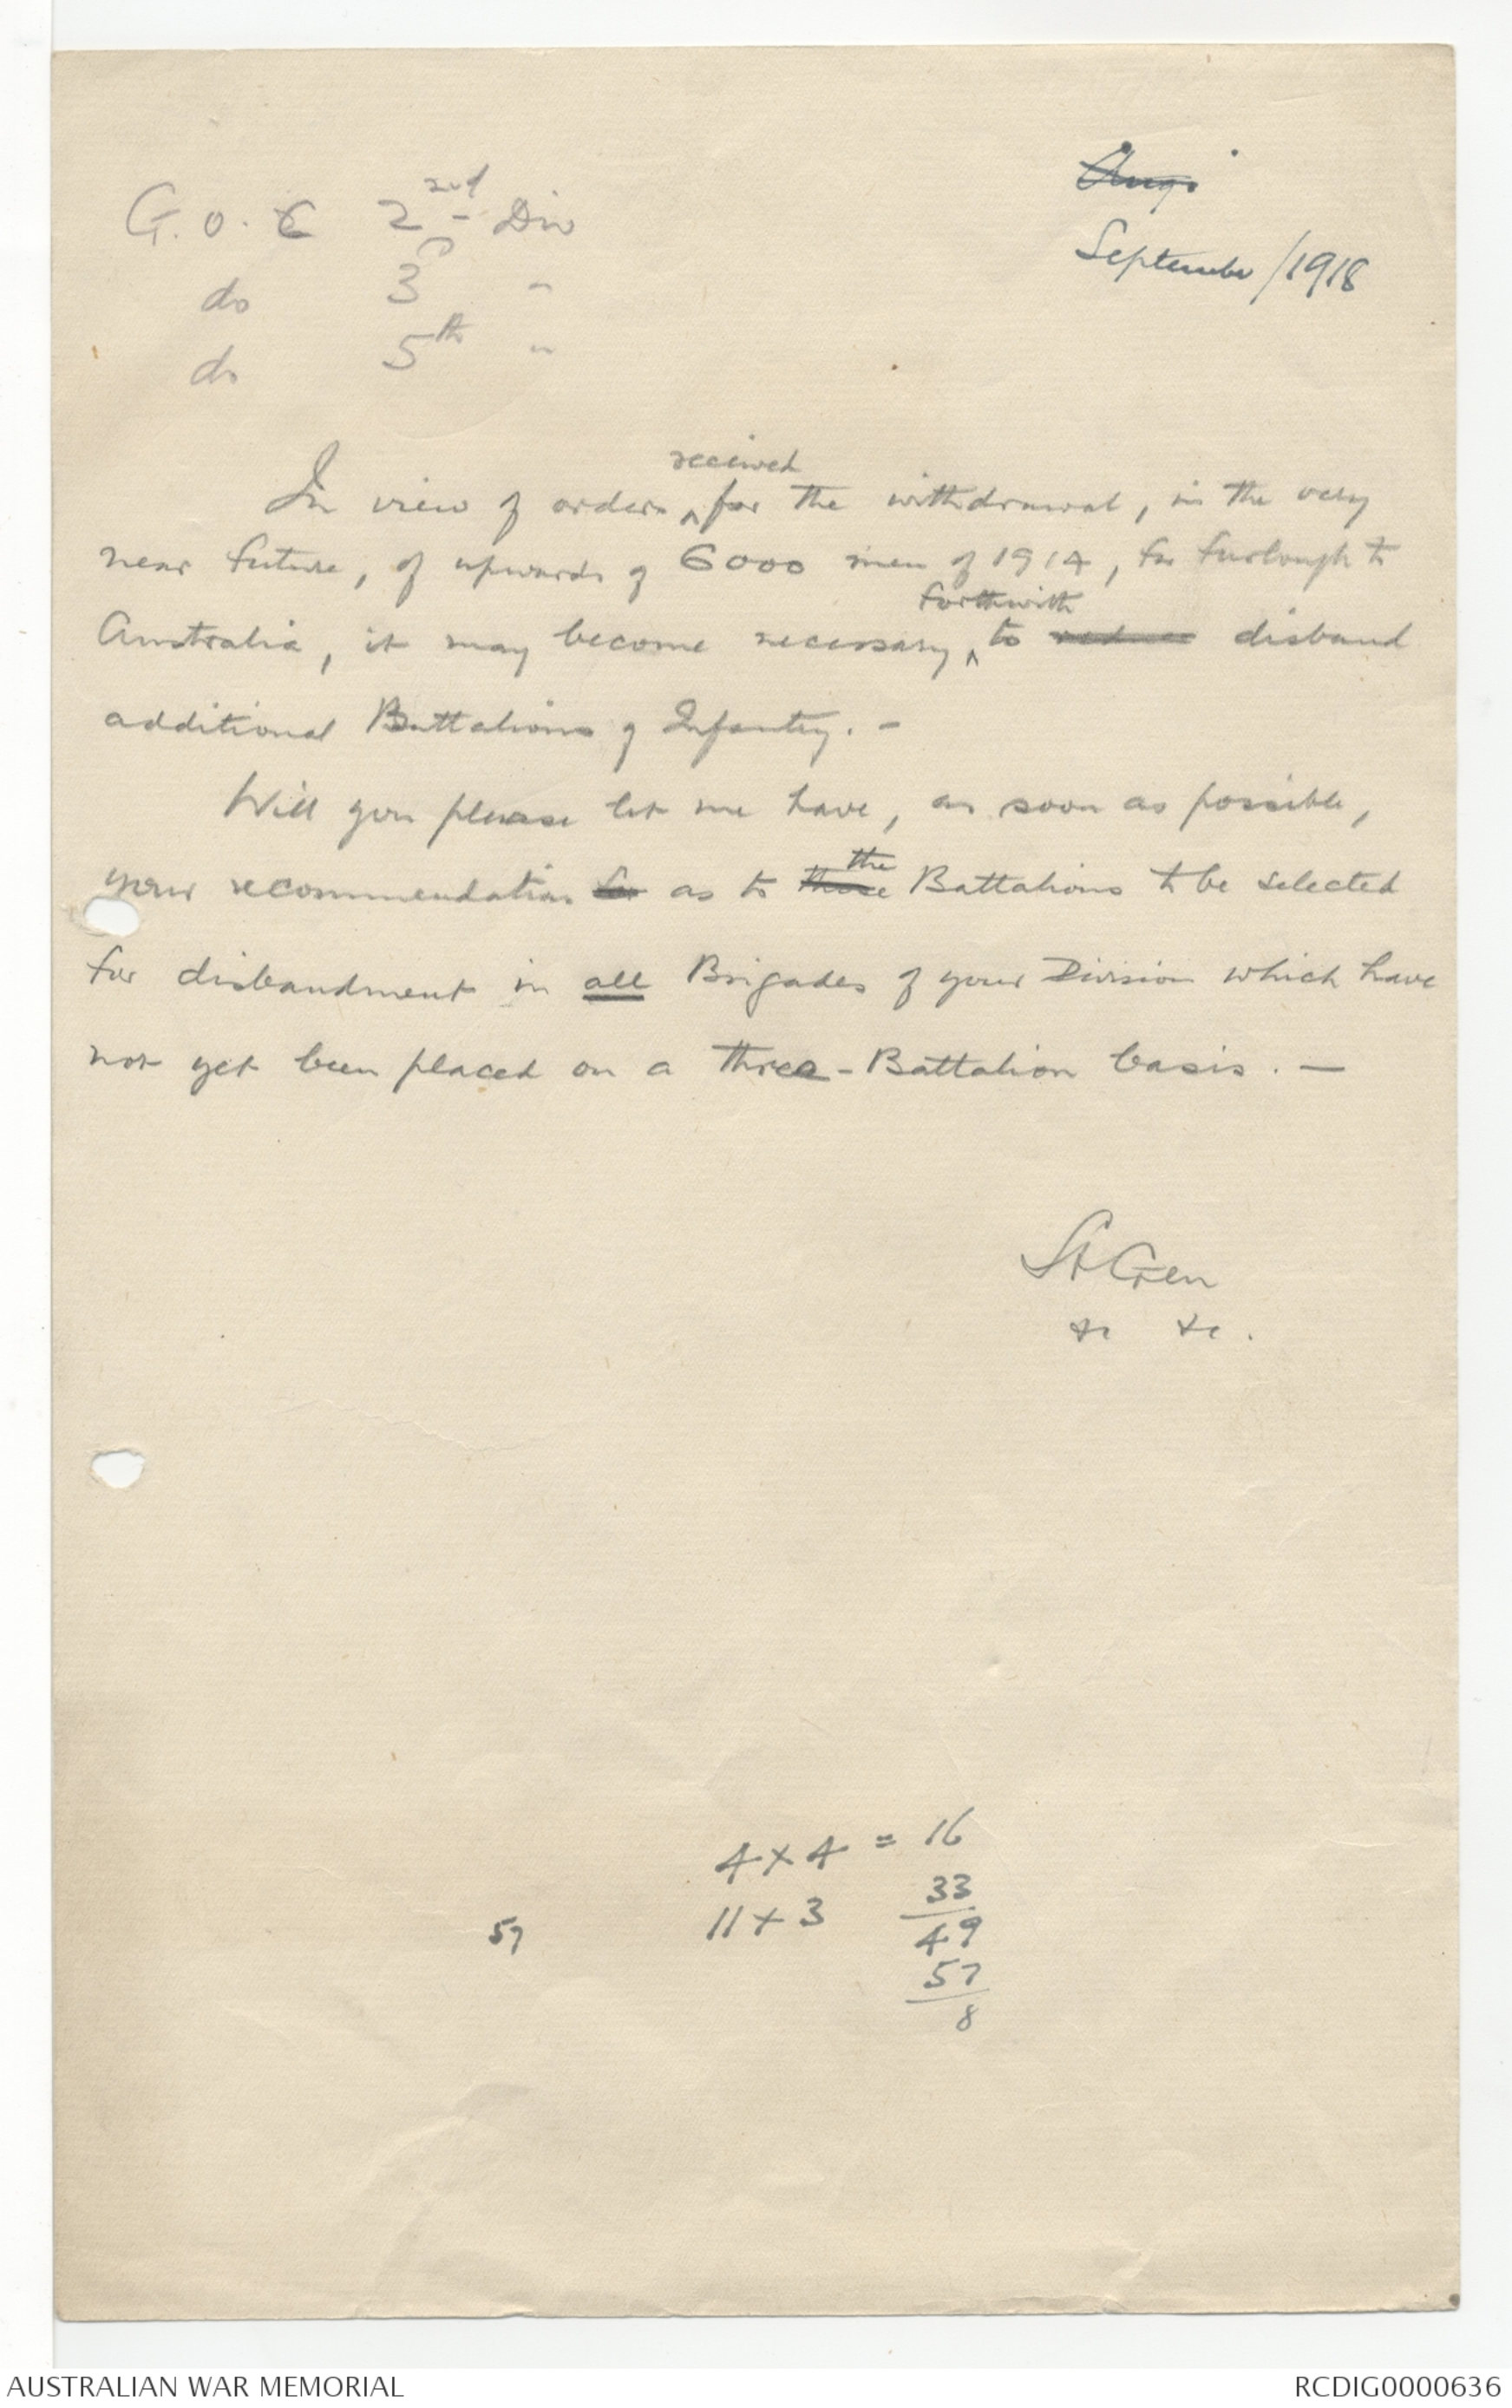 Aug.
September/1918
G.O.C 2nd Div
do 3 "
do 5th "
In view of orders received for the withdrawal, in the very
near future, of upwards of 6000 men of 1914, for furlough to
Australia, it may become necessary, forthwith to disband
additional Battalions of Infantry. -
Will you please let me have, as soon as possible,
your recommendation for as to the Battalions to be selected
for disbandment in all Brigades of your Division which have
not yet been placed on a three-Battalion basis. -
Lt Gen
&c &c.
4 x 4 = 16
11 x 3 33
49
57
57
8
AUSTRALIAN WAR MEMORIAL
RCDIG0000636